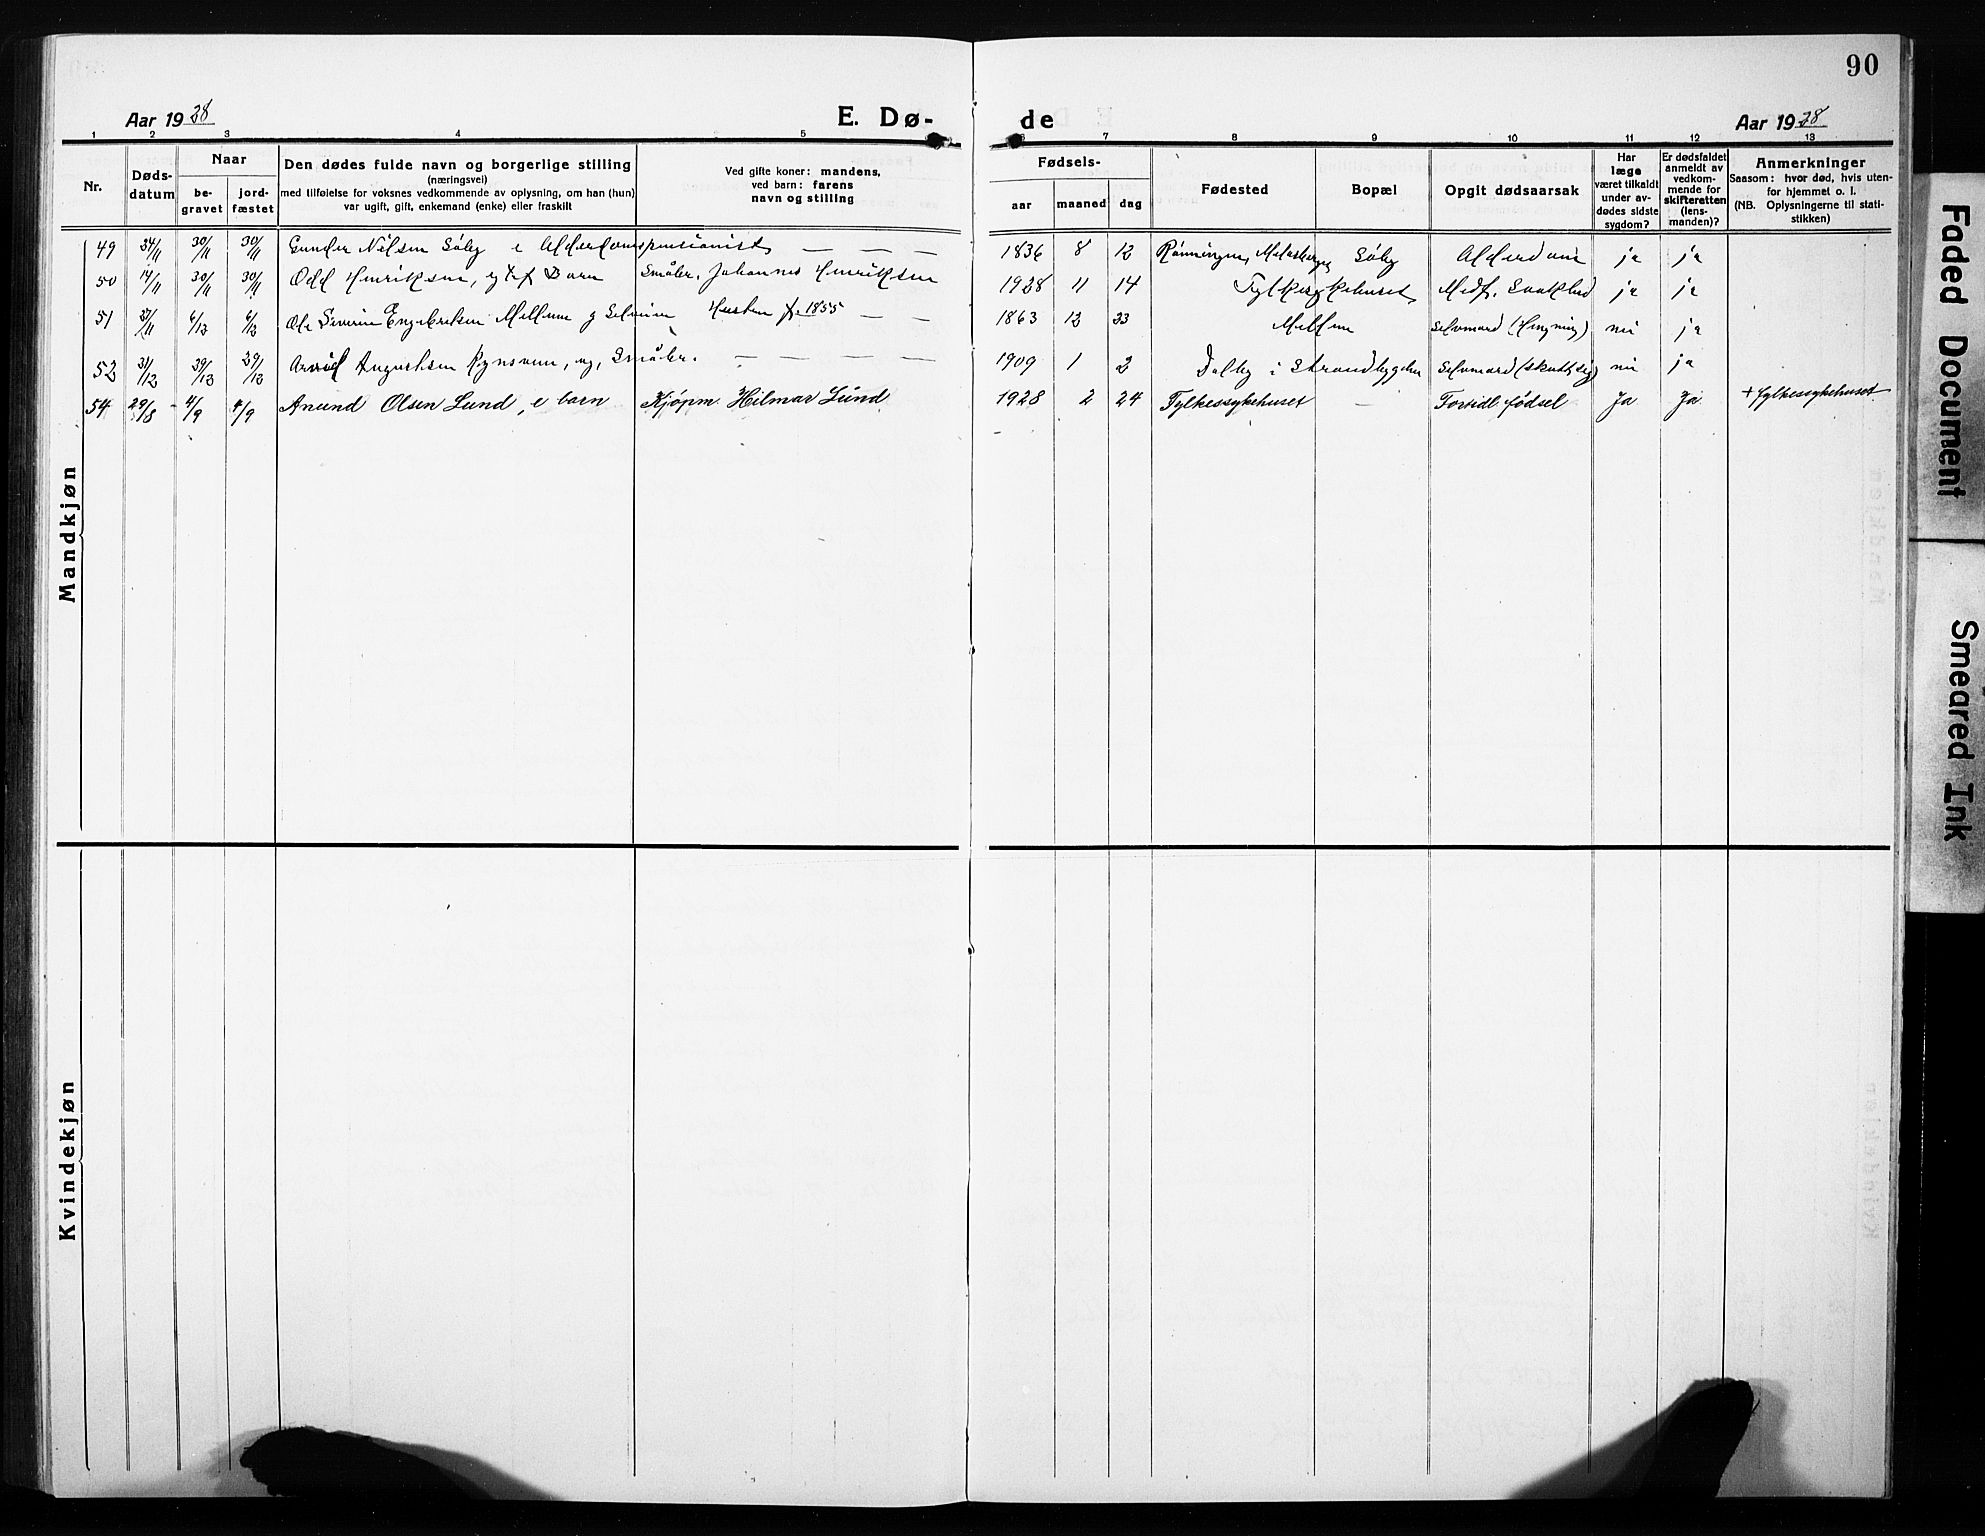 90
Aar 1928 E. Dø- de Aar 1928
1 2 3 4 5 6 7 8 9 10 11 12 13
Nr.
Døds-
datum
Naar
be-
gravet
jord-
fæstet
Den dødes fulde navn og borgerlige stilling
(næringsvei)
med tilføielse for voksnes vedkommende av oplysning, om han (hun)
var ugift, gift, enkemand (enke) eller fraskilt
Ved gifte koner: mandens,
ved barn: farens
navn og stilling
Fødsels-
aar maaned dag
Fødested
Bopæl
Opgit dødsaarsak
Har
læge
været tilkaldt
under av-
dødes sidste
sygdom?
Er dødsfaldet
anmeldt av
vedkom-
mende for
skifteretten
(lens-
manden)?
Anmerkninger
Saasom: hvor død, hvis uten-
for hjemmet o. l.
(NB. Oplysningerne til stati-
stikken)
49 24/11 30/11 30/11 Gunder Nilsen Søby e Alderdomspensionist — — 1836 8 12 Rønningen, Søby Alderdom ja ja
50 14/11 30/11 30/11 Odd Henriksen, Barn Småbr. Johannes Henriksen 1928 11 14 Fylkesykehuset ja ja
51 27/11 6/12 6/12 Ole Severin Engebretsen Mellum g f. 1855 — — 1863 12 23 Mellum Selvmord (Hengning) nei ja
52 21/12 29/12 29/12 Arvid Augustsen ug, Småbr. — — — — 1909 1 2 Dalby i Strandbygden Selvmord (skutt sig) nei ja
54 29/8 - 4/9 4/9 Anund Olsen Lund, e barn Kjøpm. Hilmar Lund 1928 2 24 Fylkessykehuset — Fortidl. fødsel Ja Ja + fylkessykehuset
Mandkjøn
Kvindekjøn
Faded Document
Smeared Ink